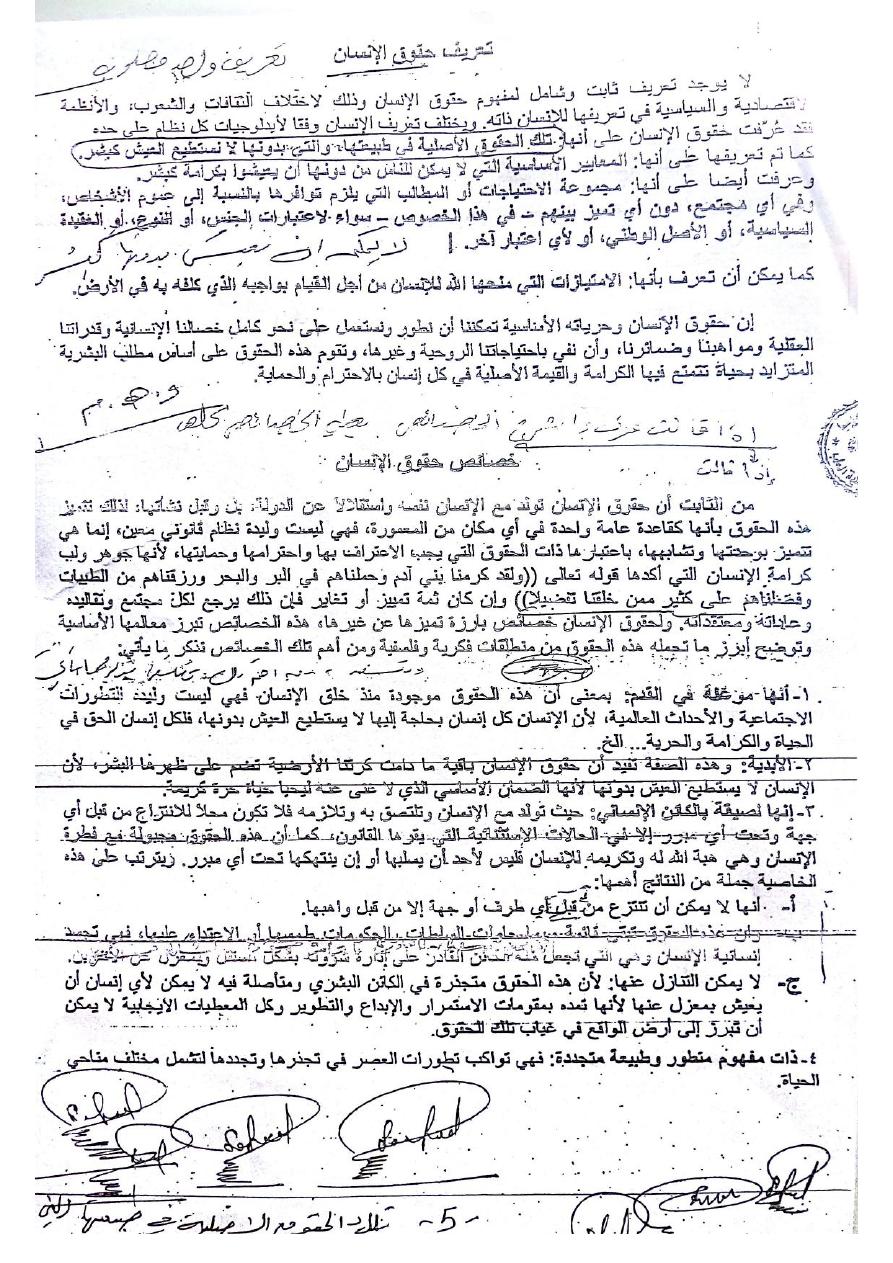 تعريف حقوق الإنسان
تعريف واحد مطلوب
لا يوجد تعريف ثابت وشامل لمفهوم حقوق الإنسان وذلك لاختلاف الثقافات والشعوب، والأنظمة
الاقتصادية والسياسية في تعريفها للإنسان ذاته. ويختلف تعريف الإنسان وفقا لأيدلوجيات كل نظام على حده
فقد عُرّفت حقوق الإنسان على أنها: تلك الحقوق الأصلية في طبيعتها، والتي بدونها لا نستطيع العيش كبشر.
كما تم تعريفها على أنها: المعايير الأساسية التي لا يمكن للناس من دونها أن يعيشوا بكرامة كبشر.
وعرفت أيضا على أنها: مجموعة الاحتياجات أو المطالب التي يلزم توافرها بالنسبة إلى عموم الأشخاص،
وفي أي مجتمع، دون أي تميز بينهم - في هذا الخصوص - سواء لاعتبارات الجنس، أو النوع، أو العقيدة
السياسية، أو الأصل الوطني، أو لأي اعتبار آخر.
لا يمكن ان نعيش بدونها كبشر
كما يمكن أن تعرف بأنها: الامتيازات التي منحها الله للإنسان من أجل القيام بواجبه الذي كلفه به في الأرض.
إن حقوق الإنسان وحرياته الأساسية تمكننا أن نطور ونستعمل على نحو كامل خصالنا الإنسانية وقدراتنا
العقلية ومواهبنا وضمائرنا، وأن نفي باحتياجاتنا الروحية وغيرها، وتقوم هذه الحقوق على أساس مطلب البشرية
المتزايد بحياة تتمتع فيها الكرامة والقيمة الأصلية في كل إنسان بالاحترام والحماية.
إذا قالت
خصائص حقوق الإنسان
من الثابت أن حقوق الإنسان تولد مع الإنسان نفسه واستقلالاً عن الدولة، بل وقبل نشأتها: لذلك تتميز
هذه الحقوق بأنها كقاعدة عامة واحدة في أي مكان من المعمورة، فهي ليست وليدة نظام قانوني معين، إنما هي
تتميز بوحدتها وتشابهها، باعتبارها ذات الحقوق التي يجب الاعتراف بها واحترامها وحمايتها، لأنها جوهر ولب
كرامة الإنسان التي أكدها قوله تعالى ((ولقد كرمنا بني آدم وحملناهم في البر والبحر ورزقناهم من الطيبات
وفضلناهم على كثير ممن خلقنا تفضيلا)) وإن كان ثمة تمييز أو تغاير فإن ذلك يرجع لكل مجتمع وتقاليده
وعاداته ومعتقداته. ولحقوق الإنسان خصائص بارزة تميزها عن غيرها، هذه الخصائص تبرز معالمها الأساسية
وتوضح أبرز ما تحمله هذه الحقوق من منطلقات فكرية وفلسفية ومن أهم تلك الخصائص نذكر ما يأتي:
١- أنها موغلة في القدم: بمعنى أن هذه الحقوق موجودة منذ خلق الإنسان فهي ليست وليدة التطورات
الاجتماعية والأحداث العالمية، لأن الإنسان كل إنسان بحاجة إليها لا يستطيع العيش بدونها، فلكل إنسان الحق في
الحياة والكرامة والحرية... الخ.
٢- الأبدية: وهذه الصفة تفيد أن حقوق الإنسان باقية ما دامت كرتنا الأرضية تضم على ظهرها البشر، لأن
الإنسان لا يستطيع العيش بدونها لأنها الضمان الأساسي الذي لا غنى عنه ليحيا حياة حرة كريمة.
٣- إنها لصيقة بالكائن الإنساني: حيث تولد مع الإنسان وتلتصق به وتلازمه فلا تكون محلا للانتزاع من قبل أي
جهة وتحت أي مبرر إلا في الحالات الاستثنائية التي يقرها القانون، كما أن هذه الحقوق مجبولة مع فطرة
الإنسان وهي هبة الله له وتكريمه للإنسان فليس لأحد أن يسلبها أو إن ينتهكها تحت أي مبرر. ويترتب على هذه
الخاصية جملة من النتائج أهمها:
أ- أنها لا يمكن أن تنتزع من قبل أي طرف أو جهة إلا من قبل واهبها.
ب- وان هذه الحقوق تبقى قائمة السلطات والحكومات طمسها أو الاعتداء عليها، فهي تجسد
إنسانية الإنسان وهي التي تجعل منه الكائن القادر على إدارة شؤونه بشكل مستقل وبمعزل عن الآخرين.
ج- لا يمكن التنازل عنها: لأن هذه الحقوق متجذرة في الكائن البشري ومتأصلة فيه لا يمكن لأي إنسان أن
يعيش بمعزل عنها لأنها تمده بمقومات الاستمرار والإبداع والتطوير وكل المعطيات الايجابية لا يمكن
أن تبرز إلى أرض الواقع في غياب تلك الحقوق.
٤- ذات مفهوم متطور وطبيعة متجددة: فهي تواكب تطورات العصر في تجذرها وتجددها لتشمل مختلف مناحي
الحياة.
-5-
تلك الحقوق الاصلية في طبيعتها والتي